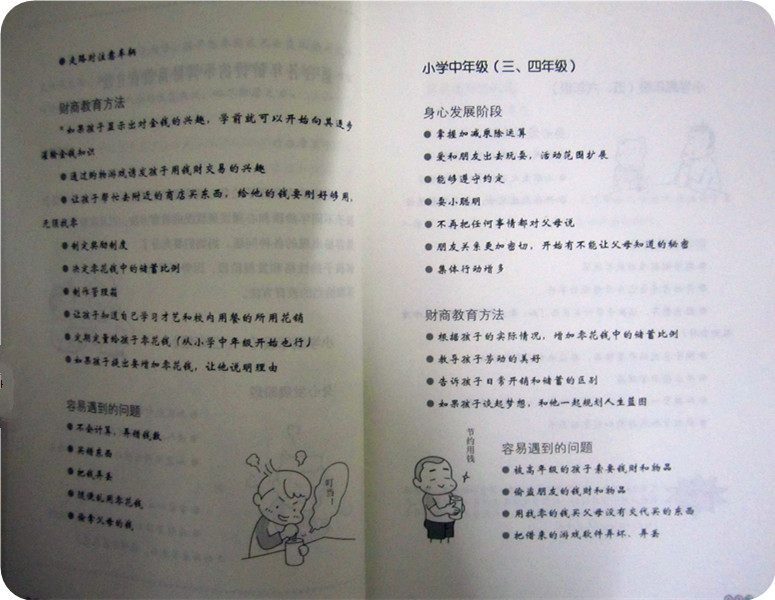 ● 走路时注意车辆
财商教育方法
● 如果孩子显示出对金钱的兴趣，学前就可以开始向其逐步
灌输金钱知识
● 通过购物游戏诱发孩子用钱财交易的兴趣
● 让孩子帮忙去附近的商店买东西，给他的钱要刚好够用，
无须找零
● 制定奖励制度
● 决定零花钱中的储蓄比例
● 制作管理箱
● 让孩子知道自己学习才艺和校内用餐的所用花销
● 定期定量给孩子零花钱（从小学中年级开始也行）
● 如果孩子提出要增加零花钱，让他说明理由
容易遇到的问题
● 不会计算，弄错钱数
● 买错东西
● 把钱弄丢
● 随便乱用零花钱
● 偷拿父母的钱
叮当！
小学中年级（三、四年级）
身心发展阶段
● 掌握加减乘除运算
● 爱和朋友出去玩耍，活动范围扩展
● 能够遵守约定
● 耍小聪明
● 不再把任何事情都对父母说
● 朋友关系更加密切，开始有不能让父母知道的秘密
● 集体行动增多
财商教育方法
● 根据孩子的实际情况，增加零花钱中的储蓄比例
● 教导孩子劳动的美好
● 告诉孩子日常开销和储蓄的区别
● 如果孩子谈起梦想，和他一起规划人生蓝图
节约用钱
容易遇到的问题
● 被高年级的孩子索要钱财和物品
● 偷盗朋友的钱财和物品
● 用找零的钱买父母没有交代买的东西
● 把借来的游戏软件弄坏、弄丢